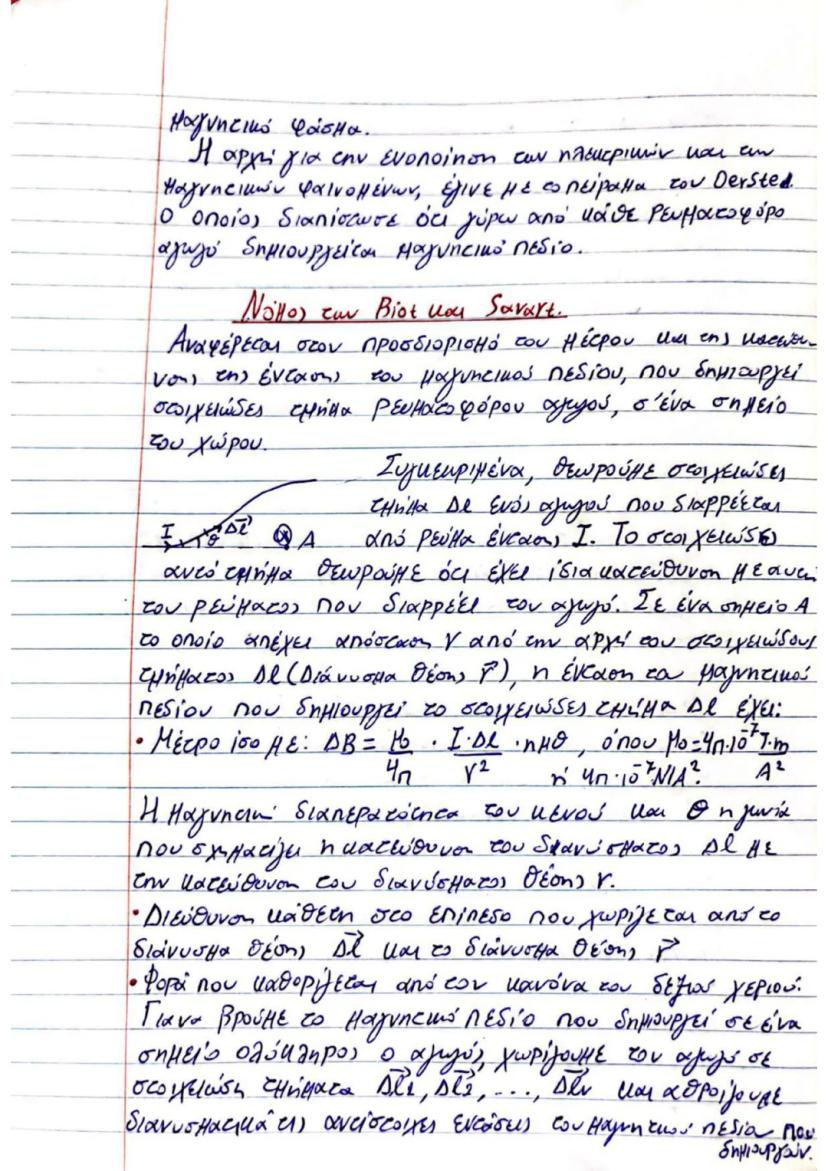 μαγνητικό φάσμα.
Η αρχή για την ενοποίηση των ηλεκτρικών και των
μαγνητικών φαινομένων, έγινε με το πείραμα του Oersted.
Ο οποίος διαπίστωσε ότι γύρω από κάθε ρευματοφόρο
αγωγό δημιουργείται μαγνητικό πεδίο.
Νόμος των Biot και Savart.
Αναφέρεται στον προσδιορισμό του μέτρου και της κατεύθυ-
νσης της έντασης του μαγνητικού πεδίου, που δημιουργεί
στοιχειώδες τμήμα ρευματοφόρου αγωγού, σ'ένα σημείο
του χώρου.
Συγκεκριμένα, θεωρούμε στοιχειώδες
τμήμα Δl ενός αγωγού που διαρρέεται
από ρεύμα έντασης I. Το στοιχειώδες
I θ Δl⃗ ⊗ A
αυτό τμήμα θεωρούμε ότι έχει ίδια κατεύθυνση με αυτή
του ρεύματος που διαρρέει τον αγωγό. Σε ένα σημείο A
το οποίο απέχει απόσταση r από την αρχή του στοιχειώδους
τμήματος Δl (Διάνυσμα θέσης r⃗), η ένταση του μαγνητικού
πεδίου που δημιουργεί το στοιχειώδες τμήμα Δl έχει:
• Μέτρο ίσο με: ΔB = μ₀/4π · I·Δl/r² · ημθ, όπου μ₀=4π·10⁻⁷ T·m/A²
ή 4π·10⁻⁷ N/A².
Η μαγνητική διαπερατότητα του κενού και θ η γωνία
που σχηματίζει η κατεύθυνση του διανύσματος Δl με
την κατεύθυνση του διανύσματος θέσης r.
• Διεύθυνση κάθετη στο επίπεδο που χωρίζεται από το
διάνυσμα θέσης Δl⃗ και το διάνυσμα θέσης r⃗
• Φορά που καθορίζεται από τον κανόνα του δεξιού χεριού.
Για να βρούμε το μαγνητικό πεδίο που δημιουργεί σε ένα
σημείο ολόκληρος ο αγωγός, χωρίζουμε τον αγωγό σε
στοιχειώδη τμήματα Δl⃗1, Δl⃗2, ..., Δl⃗ν και αθροίζουμε
διανυσματικά τις αντίστοιχες εντάσεις του μαγνητικού πεδία που
δημιουργούν.